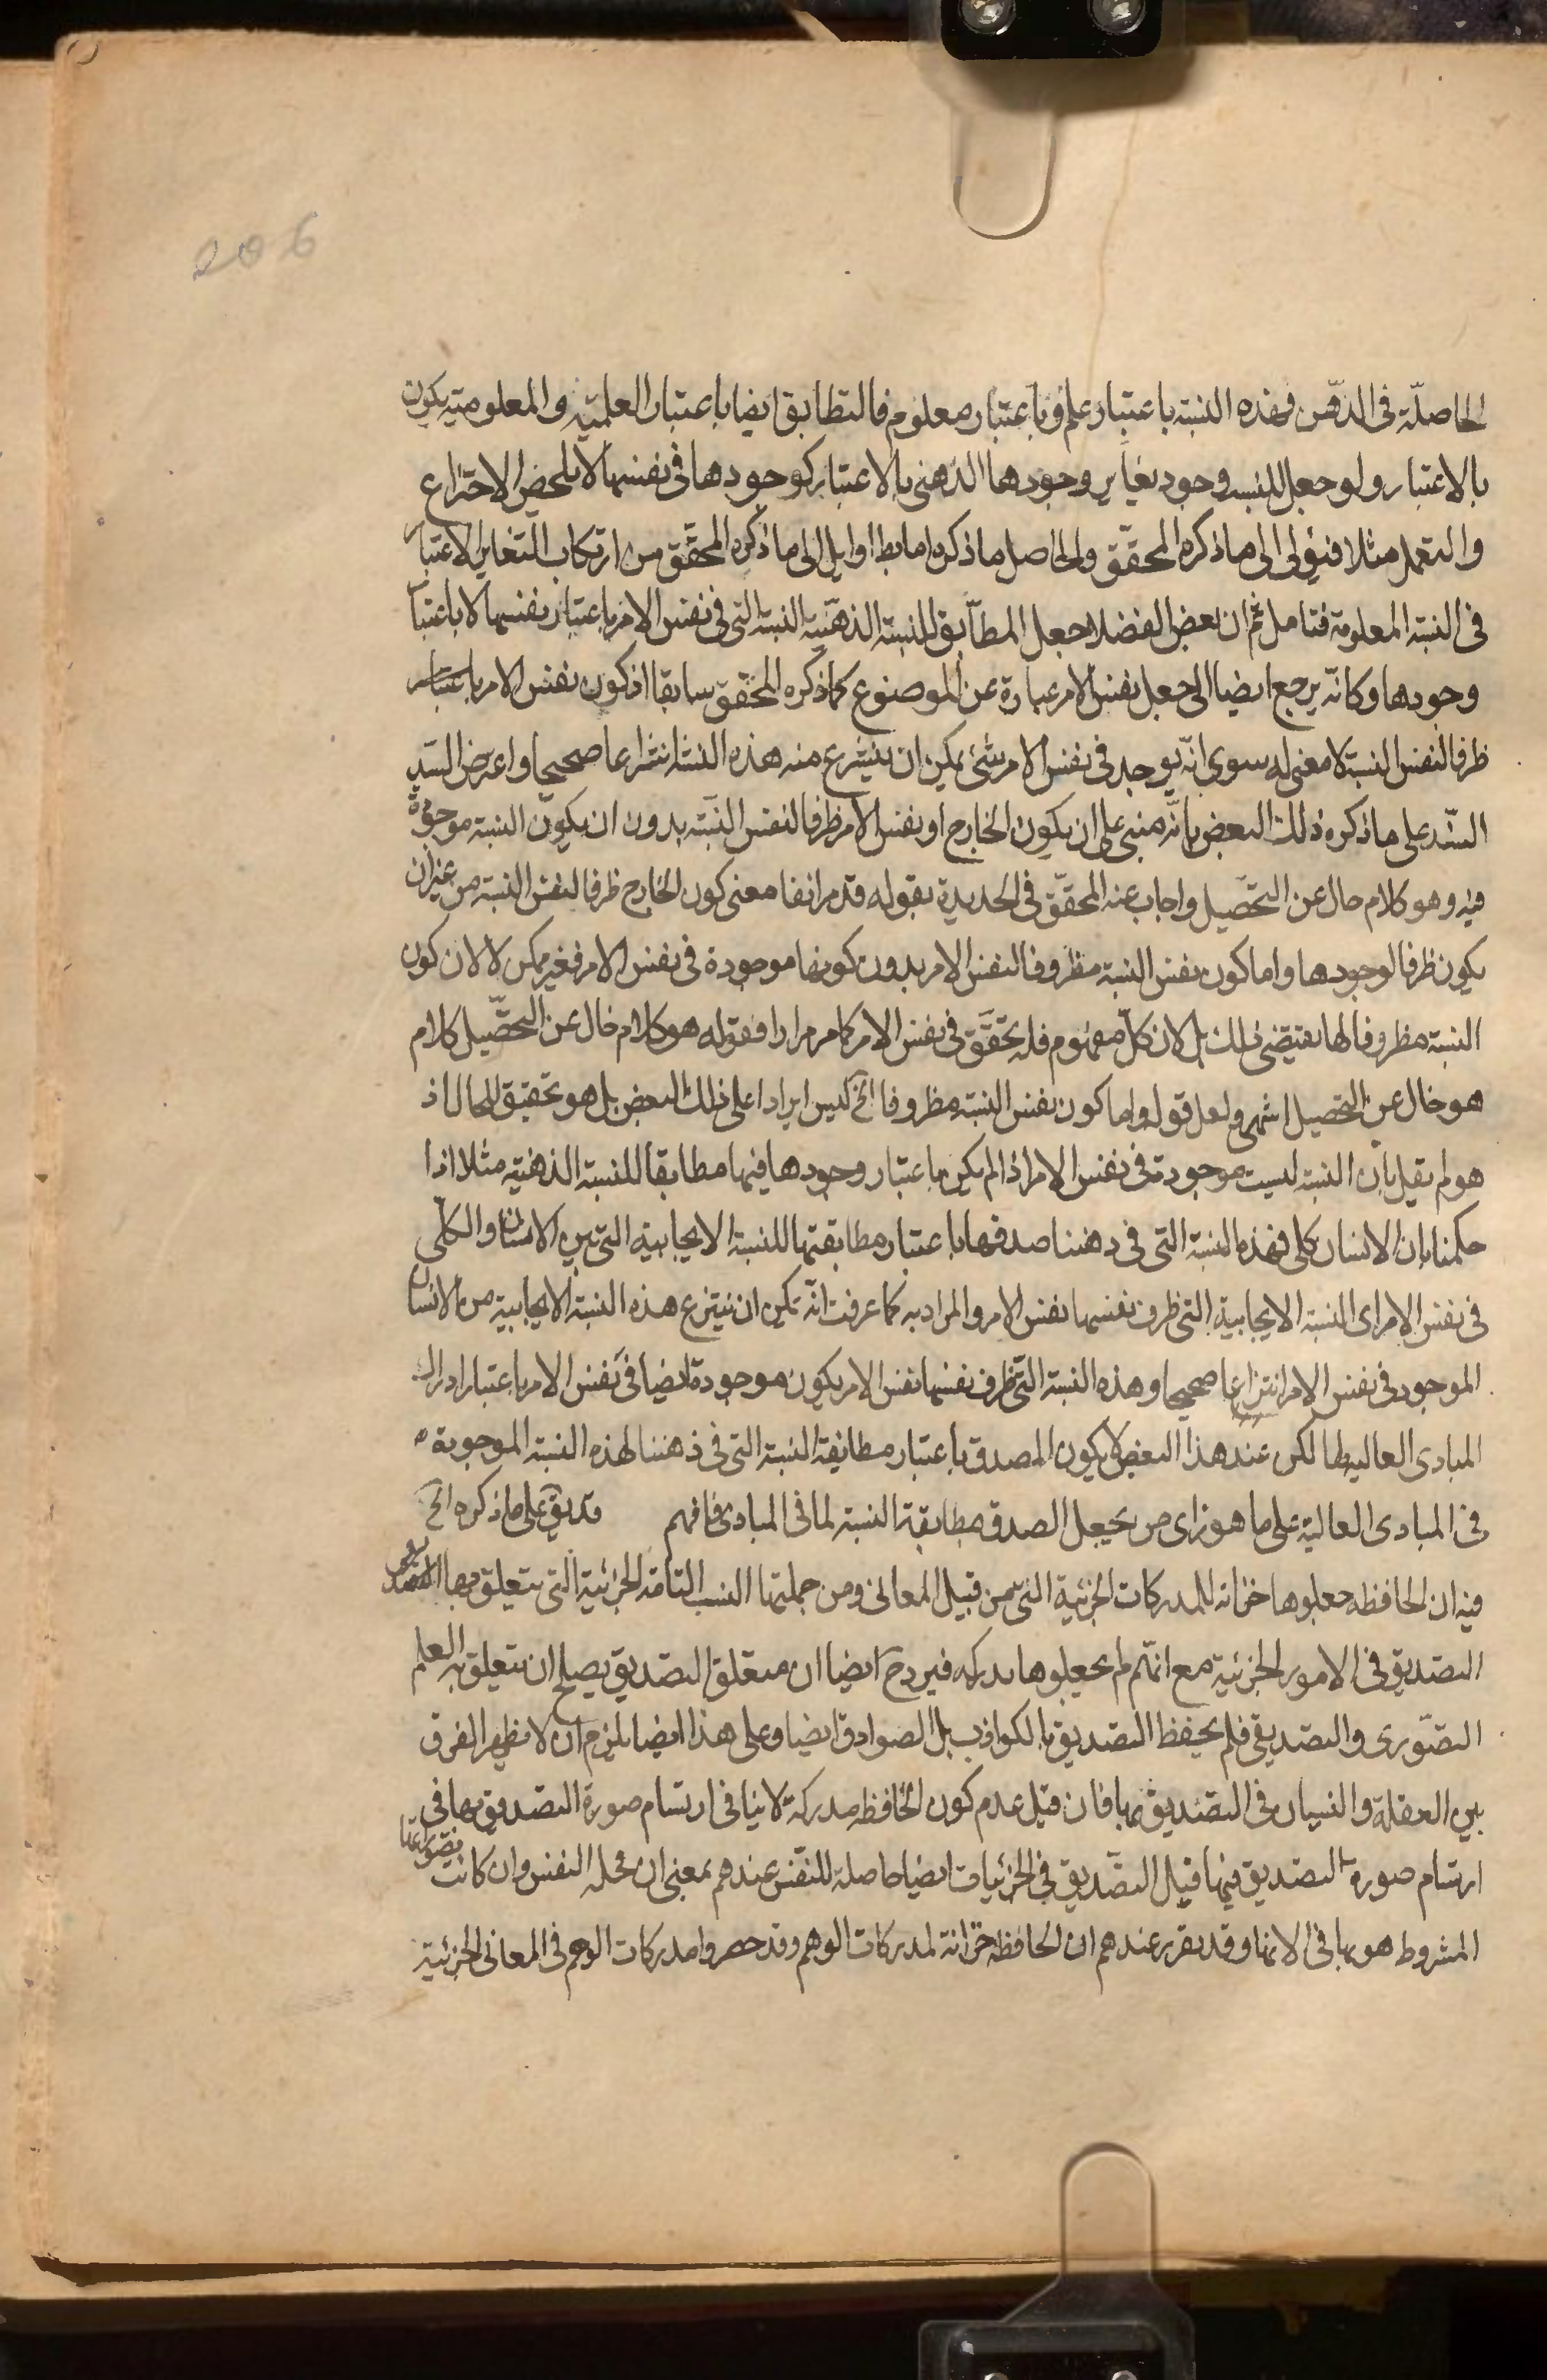 206
الحاصلة فى الذهن فهذه النسبة باعتبار علم وباعتبار معلوم فالتطابق ايضا باعتبار العلمية والمعلومية يكون
بالاعتبار ولو جعل للنسبة وجود يغاير وجودها الذهنى بالاعتبار كوجودها فى نفسها لا بمحض الاختراع
والتعمل مثلا فيؤل الى ما ذكره المحقق والحاصل ما ذكره اما بط او ايل الى ما ذكره المحقق من ارتكاب التغاير الاعتبار
فى النسبة المعلومة فتامل ثم ان بعض الفضلا جعل المطابق للنسبة الذهنية النسبة التى فى نفس الامر باعتبار نفسها لا باعتبار
وجودها وكانه يرجع ايضا الى جعل نفس الامر عبارة عن الموضوع كما ذكره المحقق سابقا اذ كون نفس الامر باعتبار
ظرفا لنفس النسبة لا معنى له سوى انه يوجد فى نفس الامر شئ يمكن ان ينتزع منه هذه النسبة انتزاعا صحيحا واعترض السيد
السند على ما ذكره ذلك البعض بانه مبنى على ان يكون الخارج او نفس الامر ظرفا لنفس النسبة بدون ان يكون النسبة موجودة
فيه وهو كلام خال عن التحصيل واجاب عنه المحقق فى الجديدة بقوله قد مر انفا معنى كون الخارج ظرفا لنفس النسبة من غير ان
يكون ظرفا لوجودها واما كون نفس النسبة مظروفا لنفس الامر بدون كونها موجودة فى نفس الامر فغير ممكن لا لان كون
النسبة مظروفا لها يقتضى ذلك بل لان كل مفهوم فله تحقق فى نفس الامر كما مر مرارا فقوله هو كلام خال عن التحصيل كلام
هو خال عن التحصيل انتهى ولعل قوله واما كون نفس النسبة مظروفا الخ ليس ايرادا على ذلك البعض بل هو تحقيق للحال اذ
هو لم يقل بان النسبة ليست موجودة فى نفس الامر اذ لم يكن باعتبار وجودها فيها مطابقا للنسبة الذهنية مثلا اذا
حكمنا بان الانسان كلى فهذه النسبة التى فى ذهننا صدقها باعتبار مطابقتها للنسبة الايجابية التى بين الانسان والكلى
فى نفس الامر اى النسبة الايجابية التى ظرف نفسها نفس الامر والمراد به كما عرفت انه يمكن ان ينتزع هذه النسبة الايجابية من الانسان
الموجود فى نفس الامر انتزاعا صحيحا وهذه النسبة التى ظرف نفسها نفس الامر يكون موجودة ايضا فى نفس الامر باعتبار ادراك
المبادى العالية لها لكن عند هذا البعض لا يكون الصدق باعتبار مطابقة النسبة التى فى ذهننا لهذه النسبة الموجودة
فى المبادى العالية على ما هو راى من يجعل الصدق مطابقة النسبة لما فى المبادى فافهم قد بقى على ما ذكره الخ
فيه ان الحافظة جعلوها خزانة للمدركات الجزئية التى من قبيل المعانى ومن جملتها النسب التامة الجزئية التى يتعلق بها
التصديق فى الامور الجزئية مع انهم لم يجعلوها مدركه فيرد ح ايضا ان متعلق التصديق يصلح ان يتعلق به العلم
التصورى والتصديقى فلم يحفظ التصديق بالكواذب بل الصوادق ايضا وعلى هذا ايضا يلزم ان لا يظهر الفرق
بين الغفلة والنسيان فى التصديق بها فان قيل عدم كون الحافظه مدركة لا ينافى ارتسام صورة التصديق بها فى
ارتسام صورة التصديق فيها قيل التصديق فى الجزئيات ايضا حاصلة للنفس عندهم بمعنى ان محله النفس وان كانت
المشروط هو بها فى الانها وقد تقرر عندهم ان الحافظه خزانة لمدركات الوهم وقد حصروا مدركات الوهم فى المعانى الجزئية